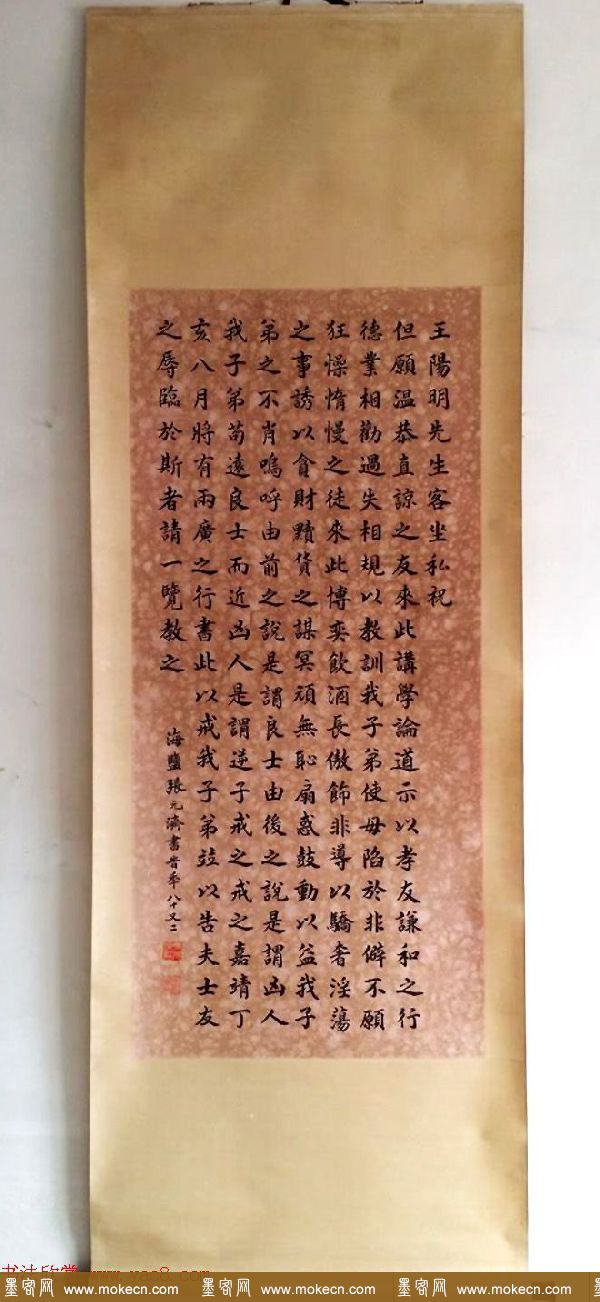 王陽明先生客坐私祝
但願温恭直諒之友來此講學論道示以孝友謙和之行
德業相勸過失相規以教訓我子弟使毋陷於非僻不願
狂懆惰慢之徒來此博奕飲酒長傲飾非導以驕奢淫蕩
之事誘以貪財黷貨之謀冥頑無恥扇惑鼓動以益我子
弟之不肖嗚呼由前之說是謂良士由後之說是謂凶人
我子弟苟遠良士而近凶人是謂逆子戒之戒之嘉靖丁
亥八月將有兩廣之行書此以戒我子弟竝以告夫士友
之辱臨於斯者請一覽教之
海鹽張元濟書昔年八十又二
书法欣赏 www.yac8.com
墨客网 www.mokecn.com 墨客网 www.mokecn.com 墨客网 www.mokecn.com